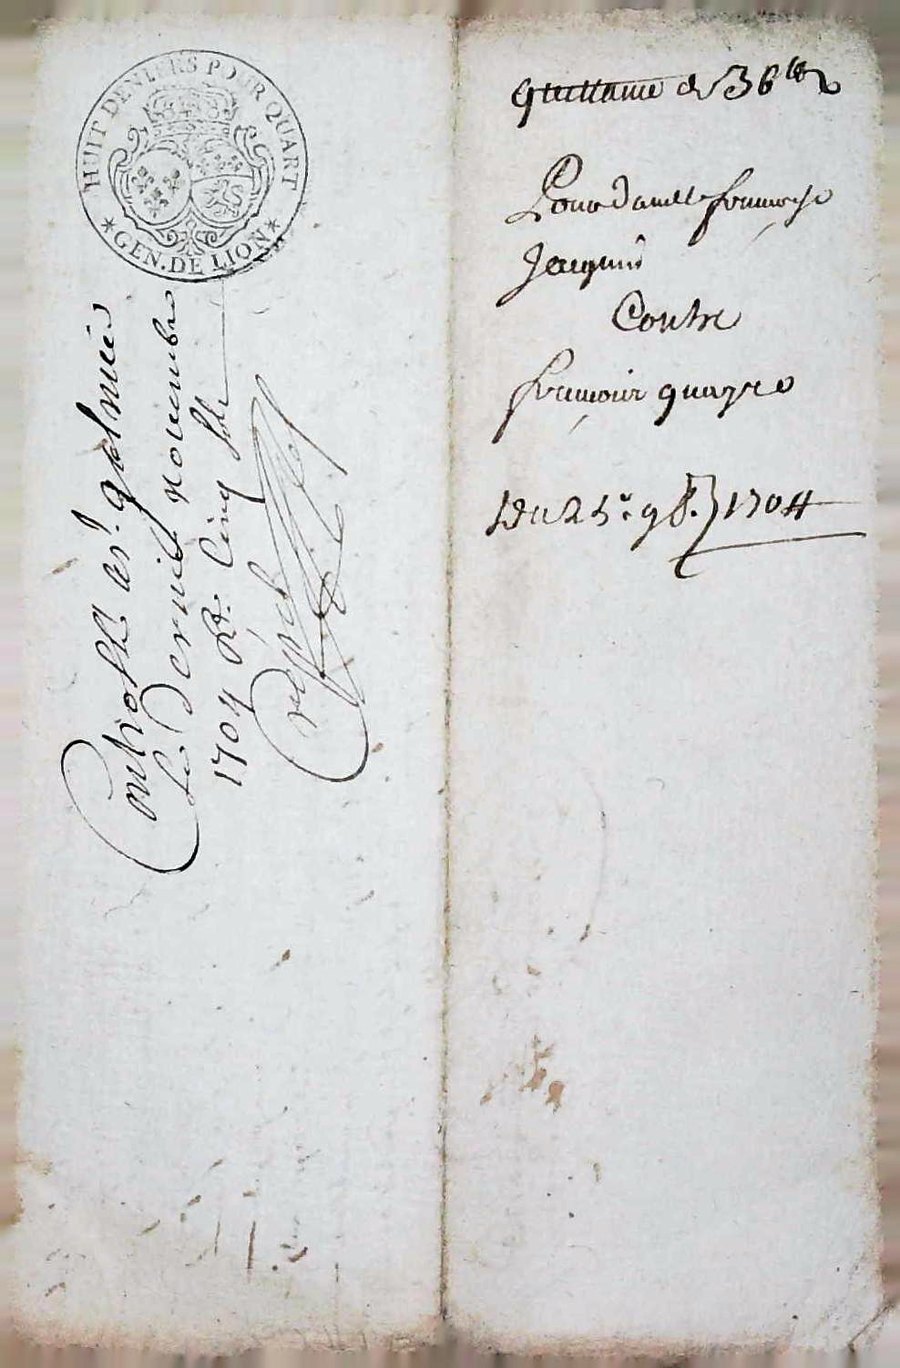 HUIT DENIERS POUR QUART
* GEN. DE LION *
Controllé a St. galmier
Le Dernier novembre
1704 Rt. Cinq sols
Quittance de 36 ltz
Pour damlle françoise
Jacquin
Contre
françois quayre
Du 25e. 9b. 1704